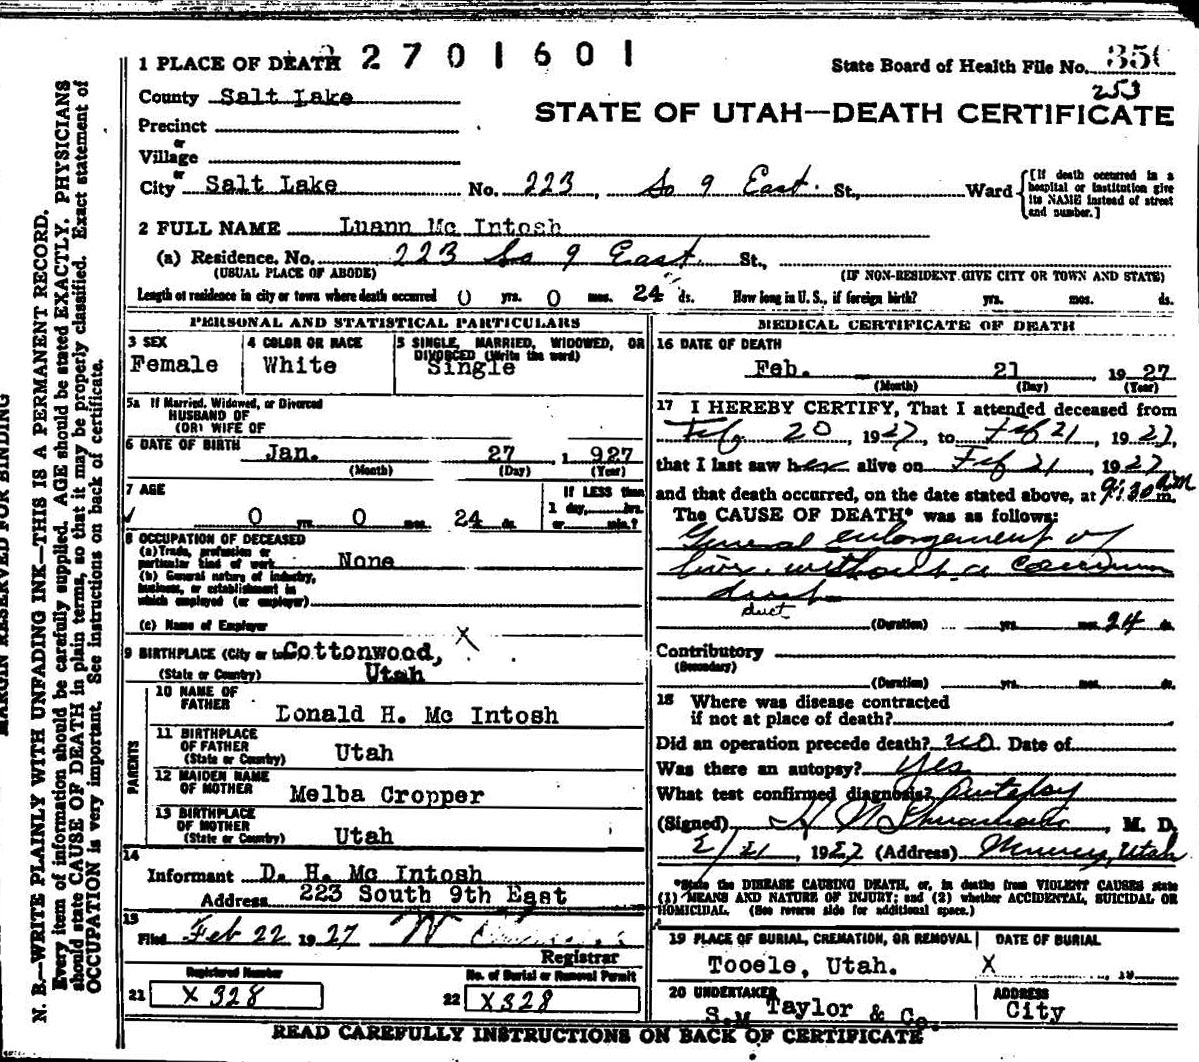 1 PLACE OF DEATH 2701601
State Board of Health File No. 350
253
County Salt Lake
STATE OF UTAH—DEATH CERTIFICATE
Precinct
or
Village
or
City Salt Lake No. 223, So 9 East. St., Ward
[If death occurred in a hospital or institution give its NAME instead of street and number.]
2 FULL NAME Luann Mc Intosh
(a) Residence. No. 223 So 9 East St.,
(USUAL PLACE OF ABODE) (IF NON-RESIDENT GIVE CITY OR TOWN AND STATE)
Length of residence in city or town where death occurred 0 yrs. 0 mos. 24 ds. How long in U. S., if foreign birth? yrs. mos. ds.
PERSONAL AND STATISTICAL PARTICULARS
3 SEX
Female
4 COLOR OR RACE
White
5 SINGLE, MARRIED, WIDOWED, OR
DIVORCED (Write the word)
Single
5a If Married, Widowed, or Divorced
HUSBAND OF
(OR) WIFE OF
6 DATE OF BIRTH Jan. 27 1927
(Month) (Day) (Year)
7 AGE
0 yrs. 0 mos. 24 ds.
If LESS than
1 day, hrs.
or min.?
8 OCCUPATION OF DECEASED
(a) Trade, profession or
particular kind of work None
(b) General nature of industry,
business, or establishment in
which employed (or employer)
(c) Name of Employer
9 BIRTHPLACE (City or town) Cottonwood, X
(State or Country) Utah
PARENTS
10 NAME OF
FATHER Donald H. Mc Intosh
11 BIRTHPLACE
OF FATHER
(State or Country) Utah
12 MAIDEN NAME
OF MOTHER Melba Cropper
13 BIRTHPLACE
OF MOTHER
(State or Country) Utah
14
Informant D. H. Mc Intosh
Address 223 South 9th East
15
Filed Feb 22 1927 W
Registrar
Registered Number
21 X 328
No. of Burial or Removal Permit
22 X328
MEDICAL CERTIFICATE OF DEATH
16 DATE OF DEATH
Feb. 21 1927
(Month) (Day) (Year)
17 I HEREBY CERTIFY, That I attended deceased from
Feby 20, 1927, to Feb 21, 1927,
that I last saw her alive on Feb 21, 1927
and that death occurred, on the date stated above, at 9:30 a.m.
The CAUSE OF DEATH* was as follows:
General enlargement of
liver without a common
duct
duct
(Duration) yrs. mos. 24 ds.
Contributory
(Secondary)
(Duration) yrs. mos. ds.
18 Where was disease contracted
if not at place of death?
Did an operation precede death? no. Date of
Was there an autopsy? Yes
What test confirmed diagnosis? Autopsy
(Signed) H N, M. D.
2/21, 1927 (Address) Murray, Utah
*State the DISEASE CAUSING DEATH, or, in deaths from VIOLENT CAUSES state
(1) MEANS AND NATURE OF INJURY; and (2) whether ACCIDENTAL, SUICIDAL OR
HOMICIDAL. (See reverse side for additional space.)
19 PLACE OF BURIAL, CREMATION, OR REMOVAL
Tooele, Utah.
DATE OF BURIAL
X , 19
20 UNDERTAKER
S.M Taylor & Co.
ADDRESS
City
READ CAREFULLY INSTRUCTIONS ON BACK OF CERTIFICATE
MARGIN RESERVED FOR BINDING
N. B.—WRITE PLAINLY WITH UNFADING INK—THIS IS A PERMANENT RECORD.
Every item of information should be carefully supplied. AGE should be stated EXACTLY. PHYSICIANS
should state CAUSE OF DEATH in plain terms, so that it may be properly classified. Exact statement of
OCCUPATION is very important. See instructions on back of certificate.